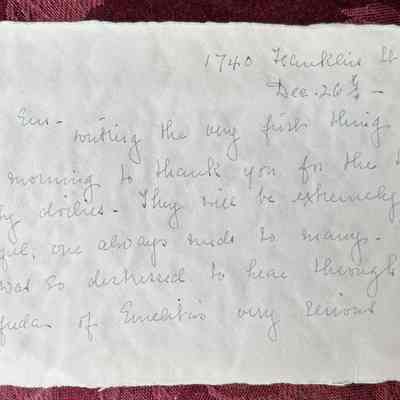 1740 Franklin St
Dec. 26th -
Em - writing the very first thing
morning to thank you for the
doilies - They will be extremely
one always needs so many -
was so distressed to hear through
of Emelita's very serious